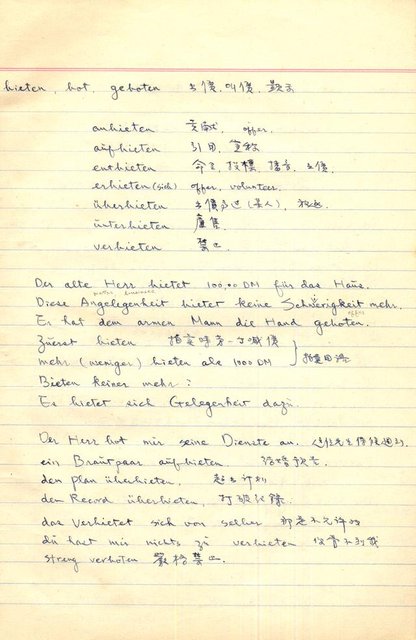 bieten, bot, geboten 出價, 叫價, 顯示
anbieten 貢獻, offer.
aufbieten 引用, 宣称
entbieten 命令,
erbieten (sich) offer, volunteer.
überbieten 出價多过(某人),
unterbieten
verbieten 禁止.
Der alte Herr bietet 100,00 DM für das Haus.
Diese Angelegenheit bietet keine Schwerigkeit mehr.
Er hat dem armen Mann die Hand geboten.
Zuerst bieten
mehr (weniger) bieten als 1000 DM
Bieten keiner mehr?
Es bietet sich Gelegenheit dazu.
Der Herr bot mir seine Dienste an.
ein Brautpaar aufbieten. 結婚
den plan überbieten, 超出計划
den Record überbieten, 打破纪錄
das verbietet sich von selber 那是不允許的
du hast mir nichts zu verbieten 你管不到我
streng verboten 嚴格禁止.